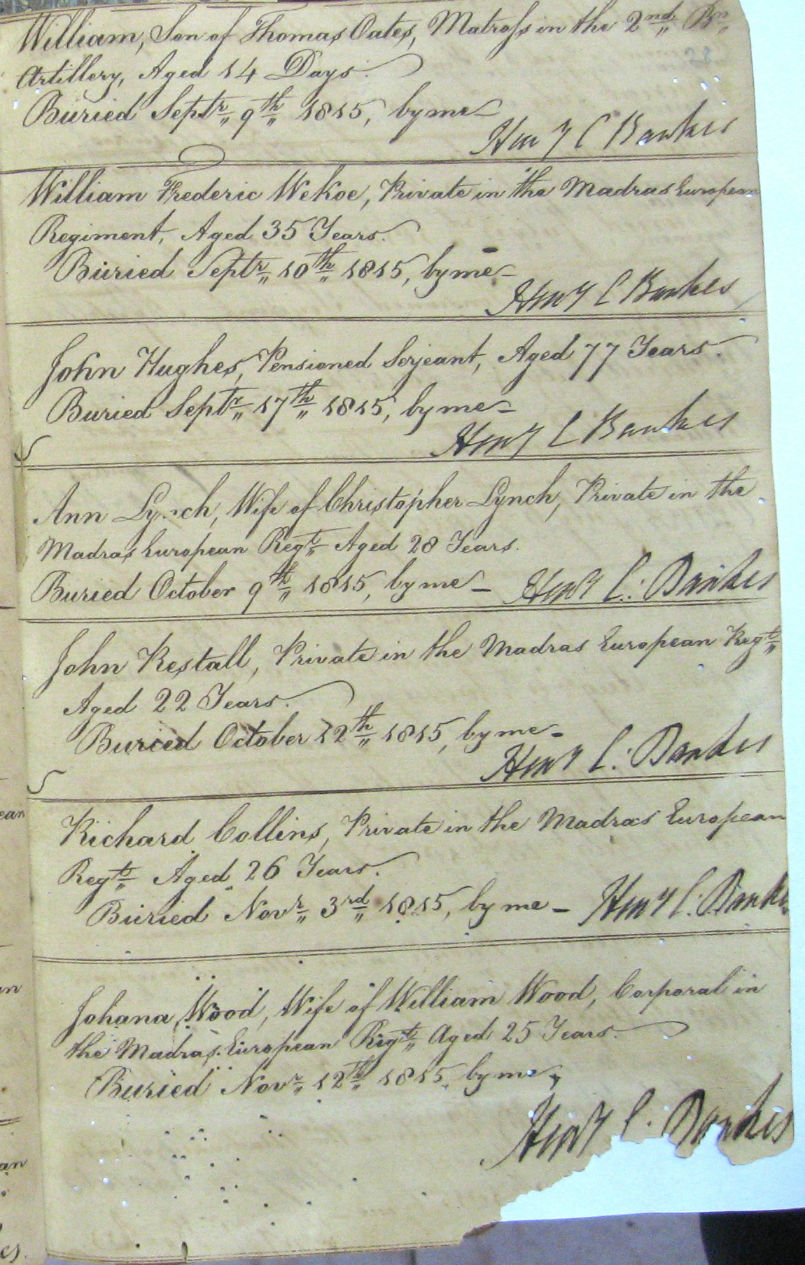 William, Son of Thomas Oates, Matross in the 2nd Bn
Artillery, Aged 14 Days.
Buried Septr 9th 1815, by me
Heny C Bankes
William Frederic Wekoe, Private in the Madras European
Regiment, Aged 35 Years.
Buried Septr 10th 1815, by me
Heny C Bankes
John Hughes, Pensioned Serjeant, Aged 77 Years.
Buried Septr 17th 1815, by me
Heny C Bankes
Ann Lynch, Wife of Christopher Lynch, Private in the
Madras European Regt Aged 28 Years.
Buried October 9th 1815, by me – Heny C. Bankes
John Restall, Private in the Madras European Regt
Aged 22 Years.
Buried October 12th 1815, by me
Heny C. Bankes
Richard Collins, Private in the Madras European
Regt Aged 26 Years.
Buried Novr 3rd 1815, by me – Heny C. Bankes
Johana Wood, Wife of William Wood, Corporal in
the Madras European Regt Aged 25 Years.
Buried Novr 12th 1815, by me,
Heny C. Bankes